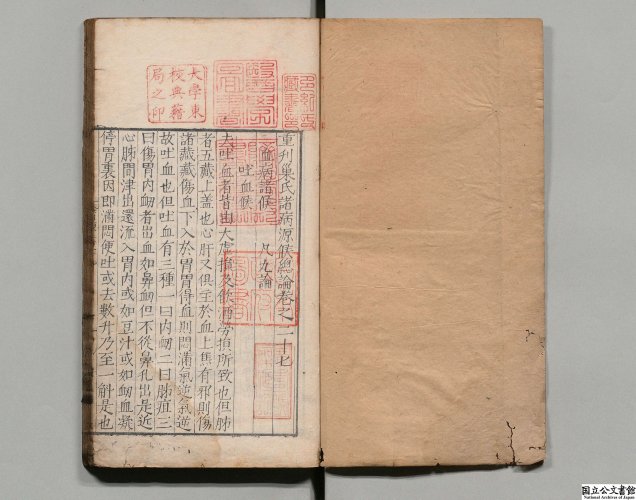 大學東
校典藉
局之印
重刋巢氏諸病源候總論卷之二十七
血病諸候　凡九論
吐血候
夫吐血者皆由大虛損及飲酒勞損所致也但肺
者五藏上盖也心肝又俱主於血上焦有邪則傷
諸藏藏傷血下入於胃胃得血則悶滿氣逆氣逆
故吐血也但吐血有三種一曰内衂二曰肺疽三
曰傷胃内衂者出血如鼻衂但不從鼻孔出是近
心肺間津出還流入胃内或如豆汁或如衂血凝
停胃裏因即滿悶便吐或去數升乃至一斛是也
国立公文書館
National Archives of Japan